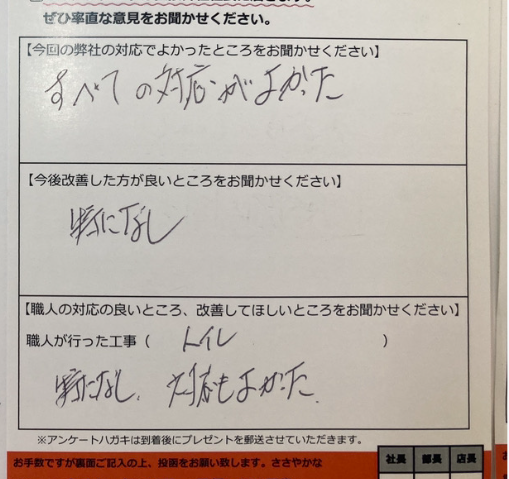 ぜひ率直な意見をお聞かせください。
【今回の弊社の対応でよかったところをお聞かせください】
すべての対応がよかった
【今後改善した方が良いところをお聞かせください】
特になし
【職人の対応の良いところ、改善してほしいところをお聞かせください】
職人が行った工事（ トイレ ）
特になし、対応もよかった。
※アンケートハガキは到着後にプレゼントを郵送させていただきます。
お手数ですが裏面ご記入の上、投函をお願い致します。ささやかな
社長 部長 店長